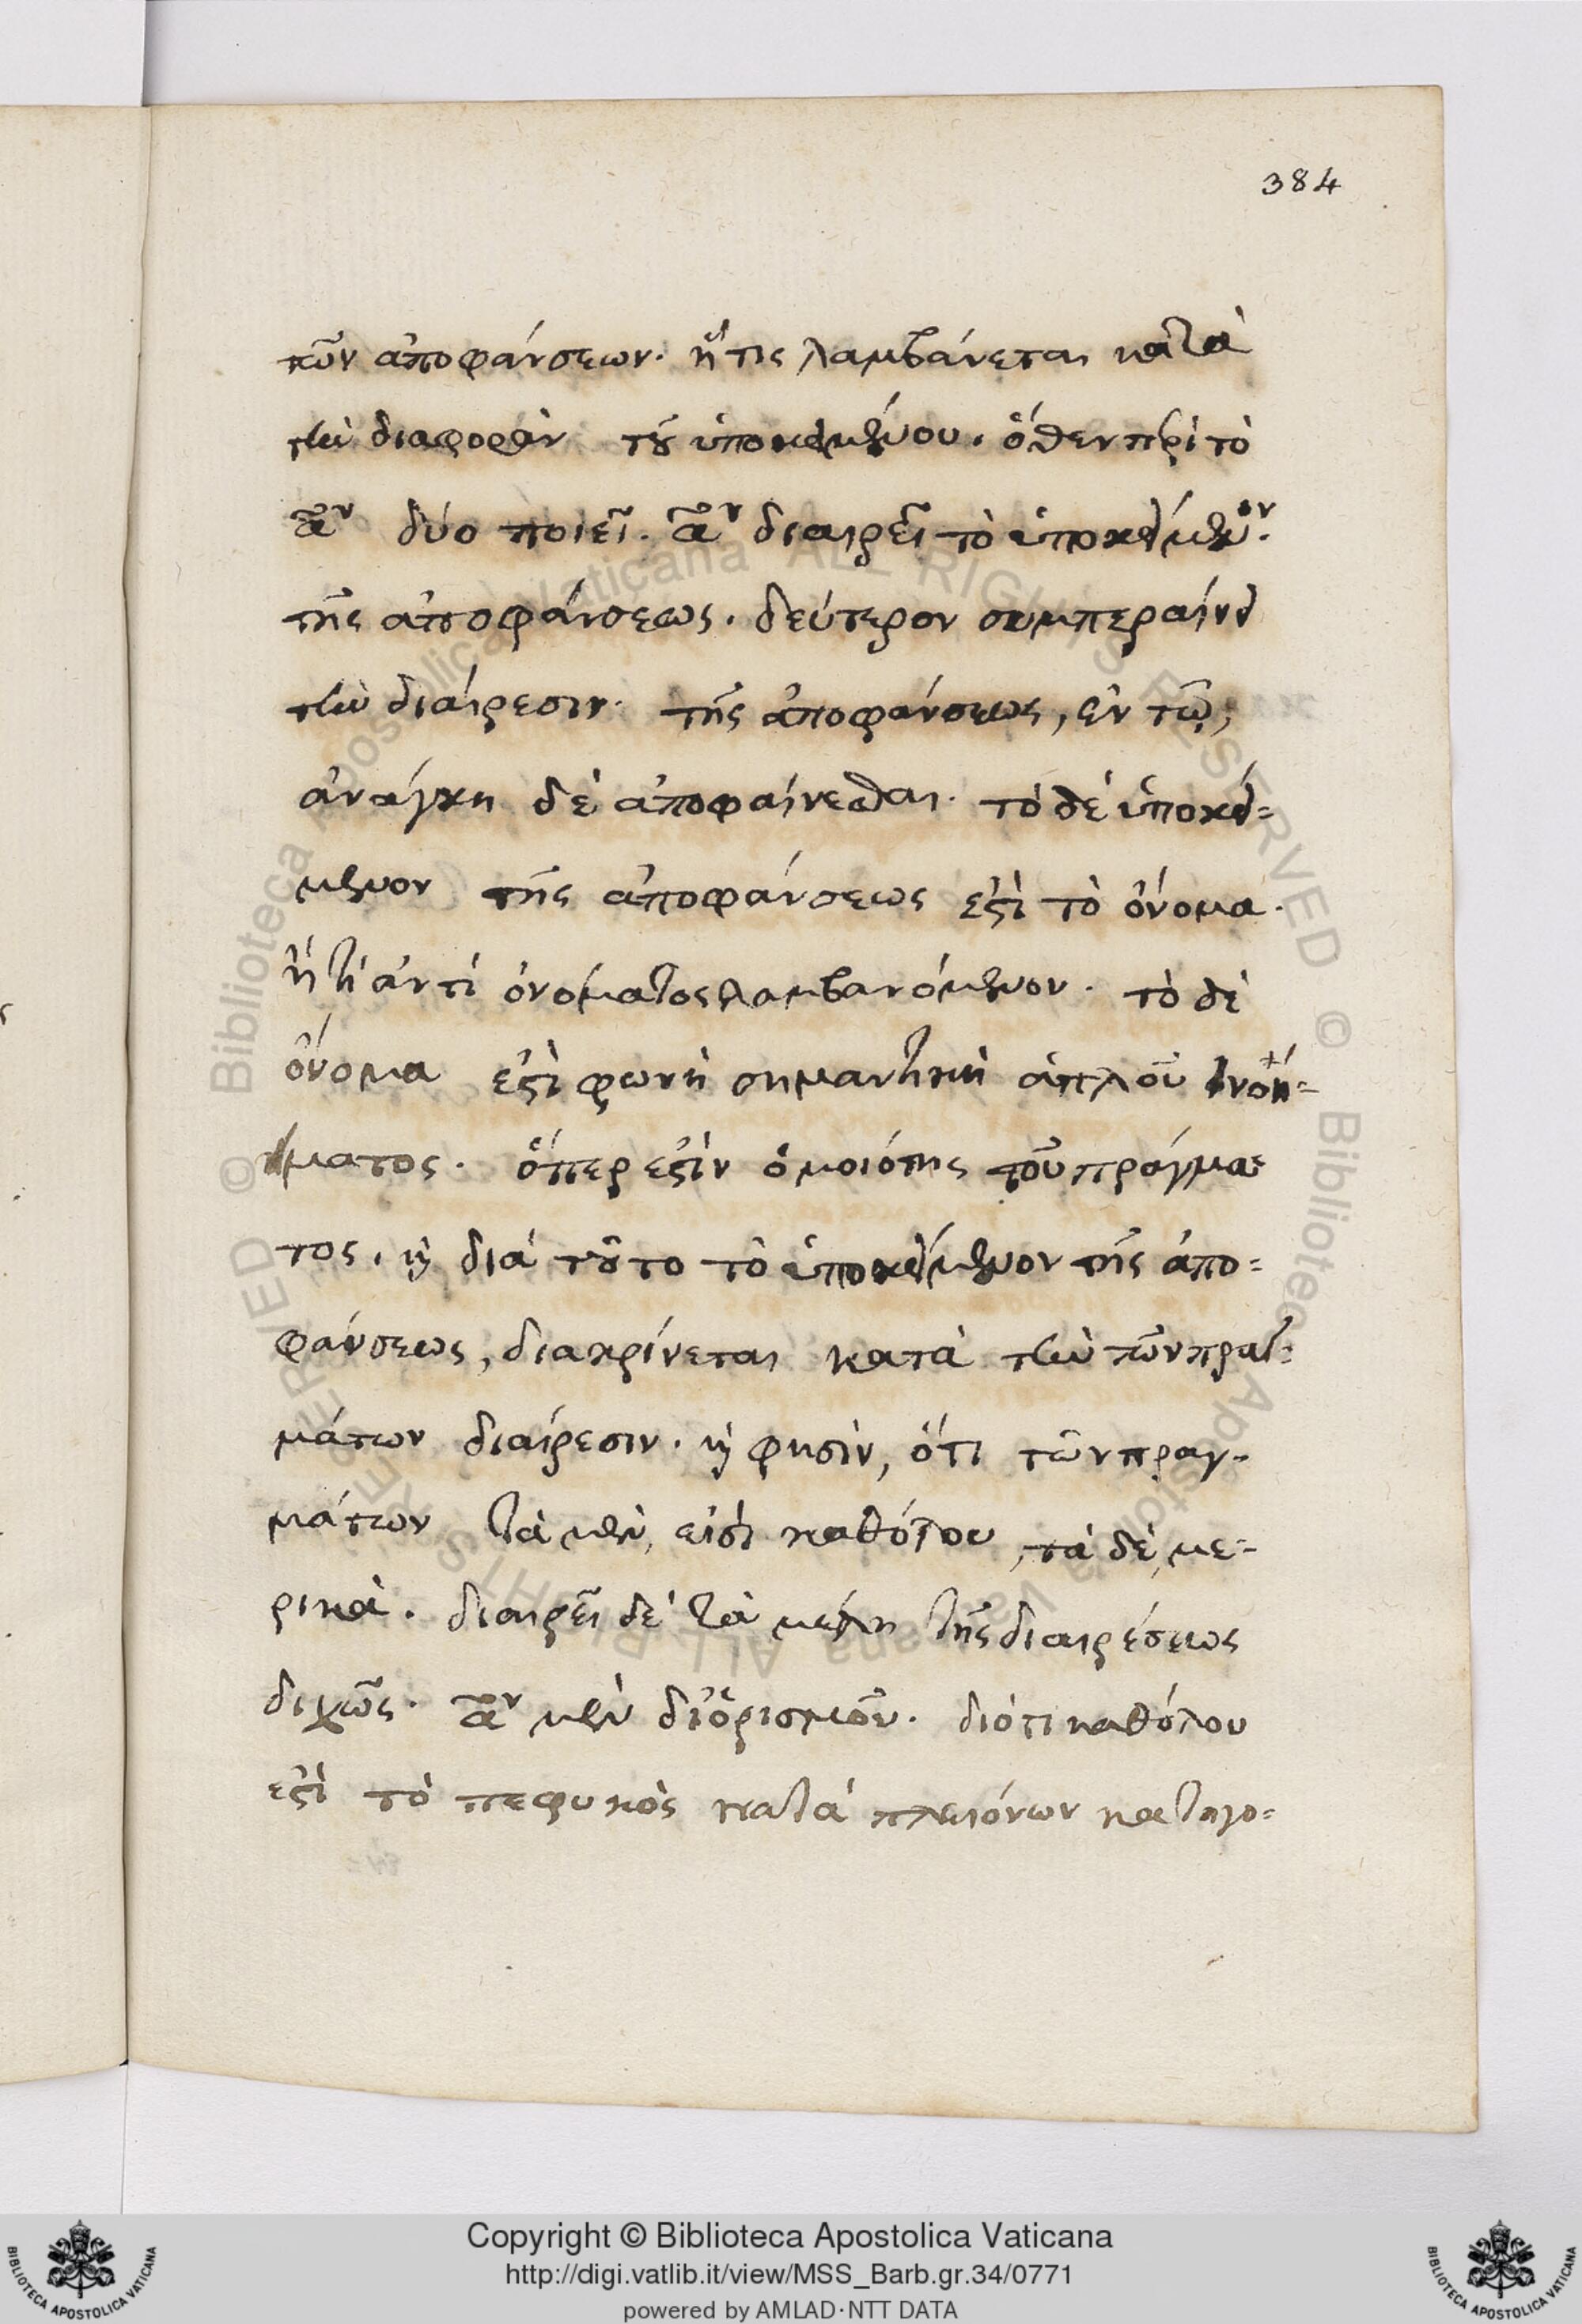 384
τῶν ἀποφάνσεων. ἥτις λαμβάνεται κατὰ
τὴν διαφορὰν τοῦ ὑποκειμένου. ὅθεν περὶ τὸ
αον δύο ποιεῖ. αον διαιρεῖ τὸ ὑποκείμενον.
τῆς ἀποφάνσεως. δεύτερον συμπεραίνει
τὴν διαίρεσιν. τῆς ἀποφάνσεως, ἐν τῷ,
ἀνάγκη δὲ ἀποφαίνεσθαι. τὸ δὲ ὑποκεί=
μενον τῆς ἀποφάνσεως ἐστὶ τὸ ὄνομα.
ἤ τι ἀντὶ ὀνόματος λαμβανόμενον. τὸ δὲ
ὄνομα ἐστὶ φωνὴ σημαντικὴ ἁπλοῦ νοή=
ματος. ὅπερ ἐστὶν ὁμοιότης τοῦ πράγμα=
τος. καὶ διὰ τοῦτο τὸ ὑποκείμενον τῆς ἀπο=
φάνσεως, διακρίνεται κατὰ τὴν τῶν πραγ=
μάτων διαίρεσιν. καὶ φησὶν, ὅτι τῶν πραγ=
μάτων τὰ μὲν, εἰσὶ καθόλου, τὰ δὲ, με=
ρικά. διαιρεῖ δὲ τὰ μέλη τῆς διαιρέσεως
διχῶς. αον μὲν δι' ὁρισμοῦ. διότι καθόλου
ἐστὶ τὸ πεφυκὸς κατὰ πλειόνων κατηγο=
Copyright © Biblioteca Apostolica Vaticana
http://digi.vatlib.it/view/MSS_Barb.gr.34/0771
powered by AMLAD·NTT DATA